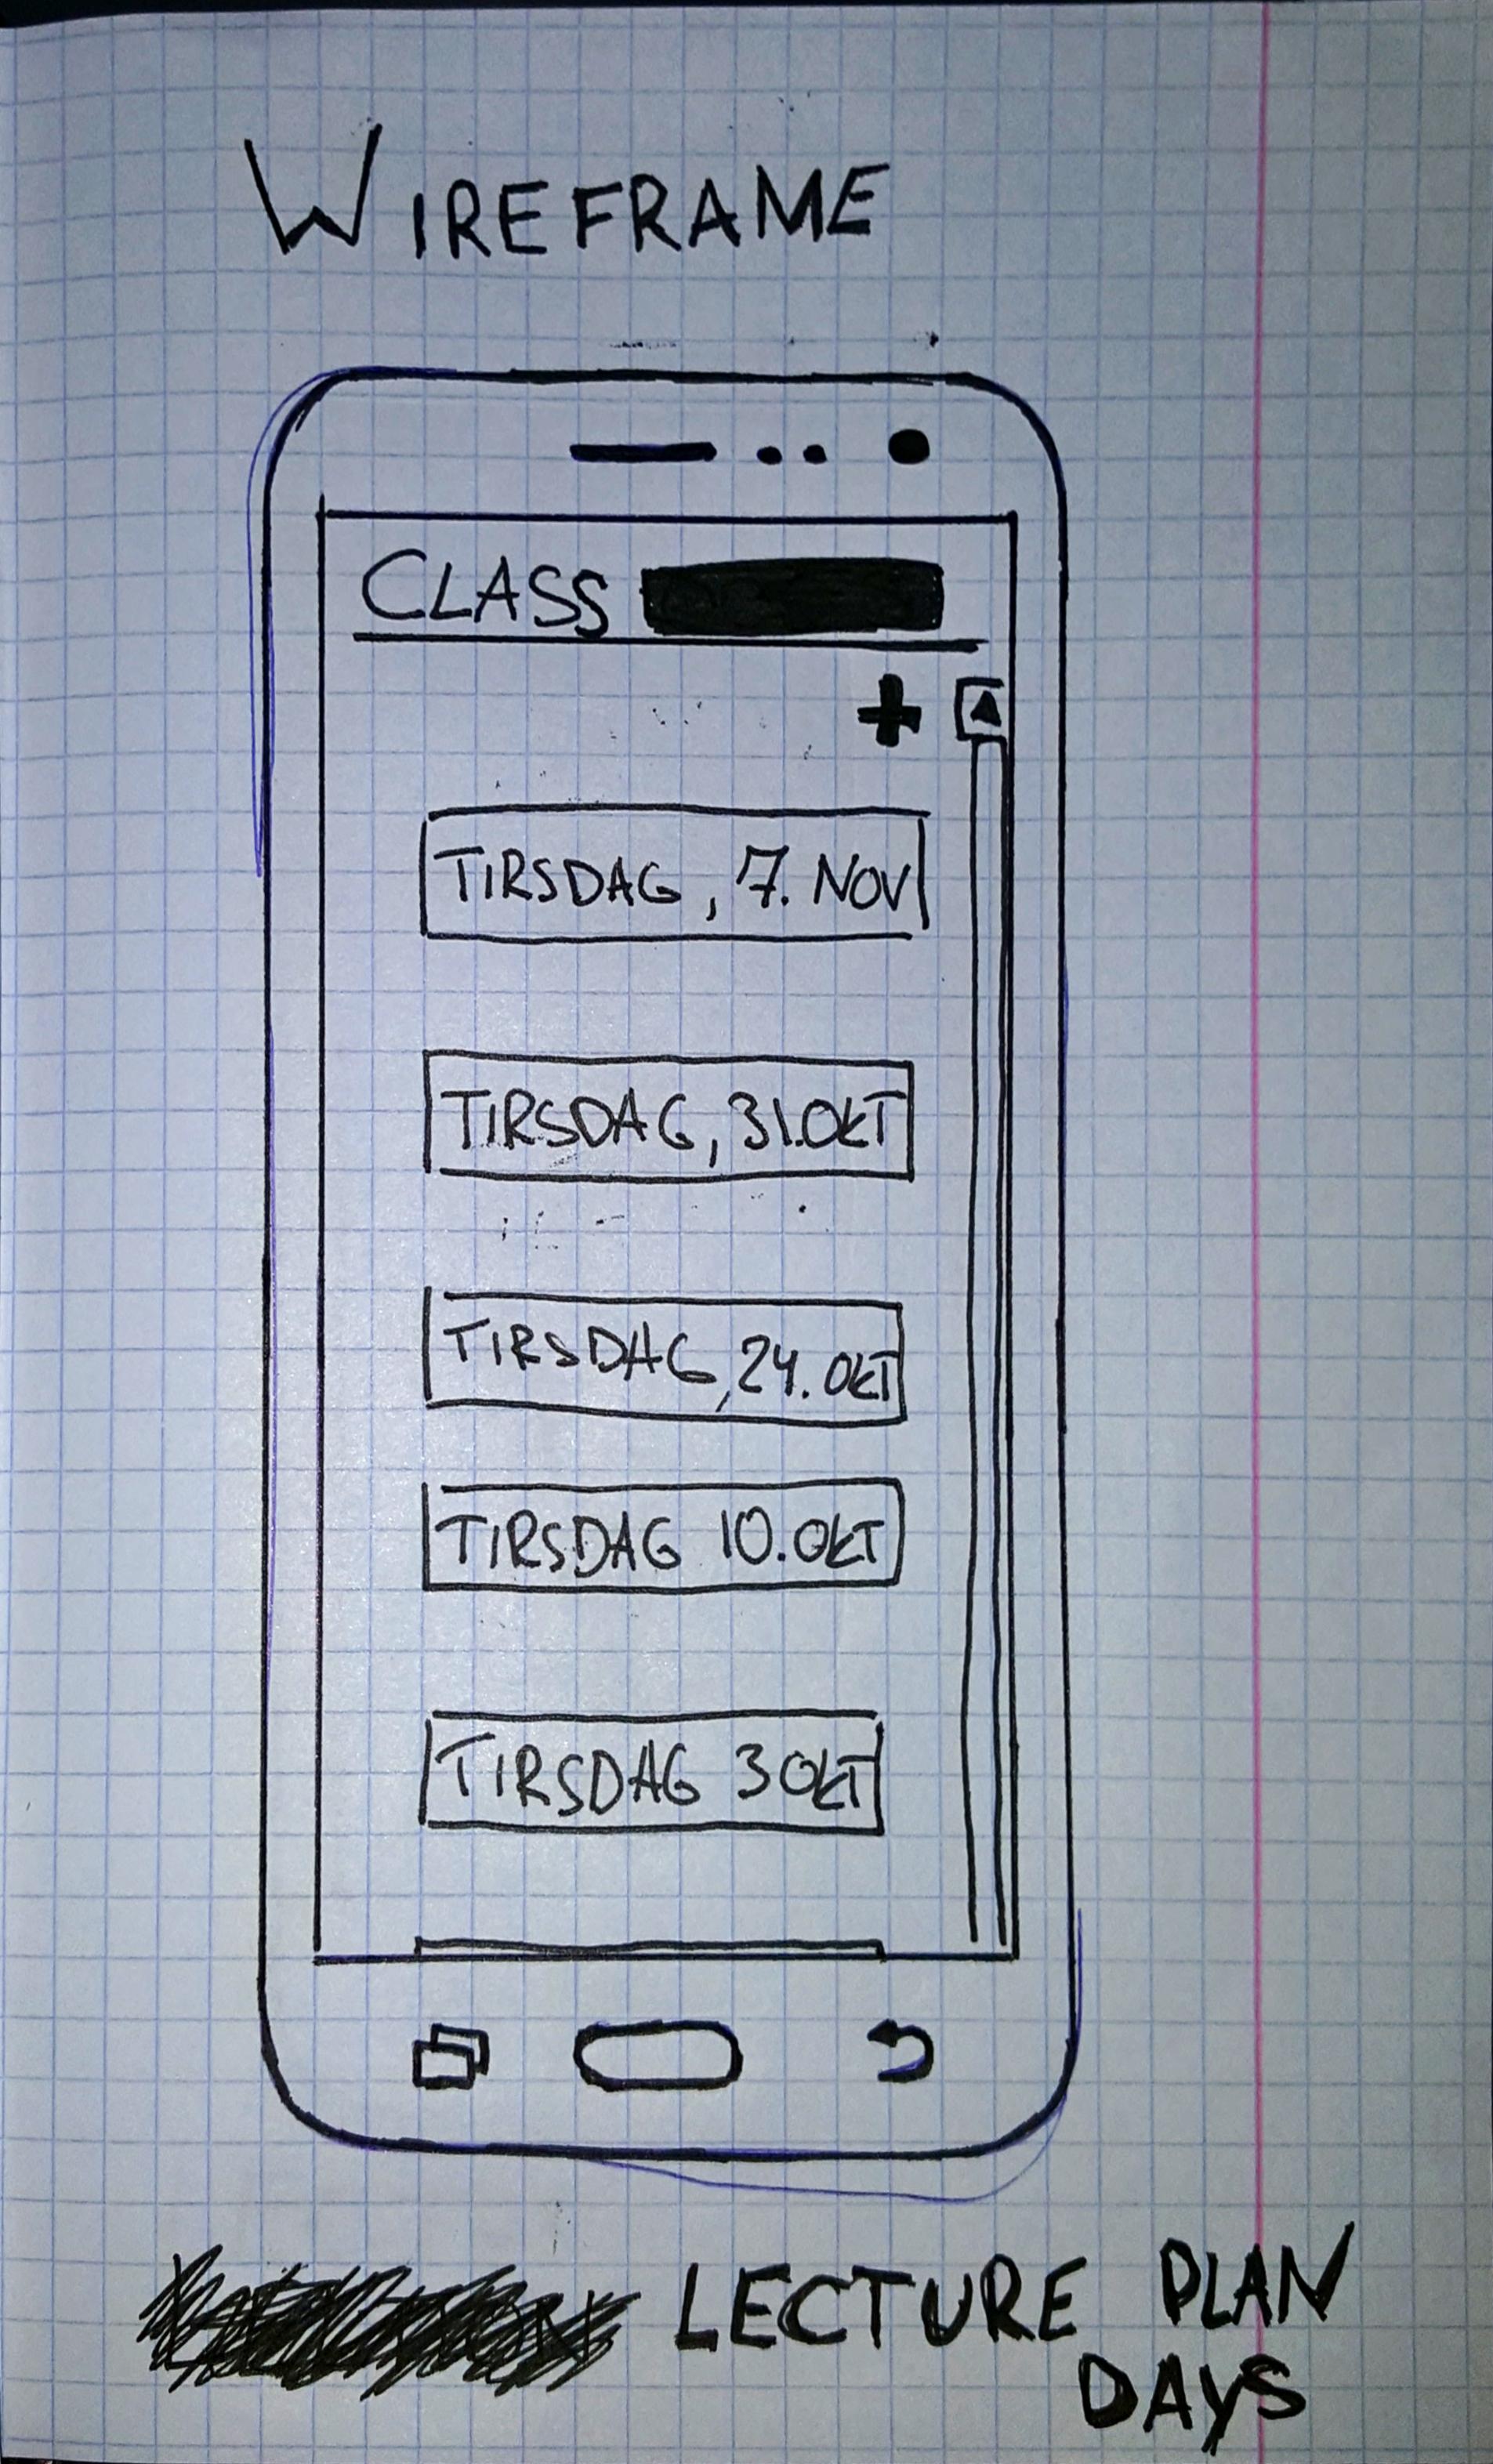 WIREFRAME
CLASS
+
TIRSDAG, 7. NOV
TIRSDAG, 31.OKT
TIRSDAG, 24. OKT
TIRSDAG 10.OKT
TIRSDAG 3 OKT
LECTURE PLAN
DAYS